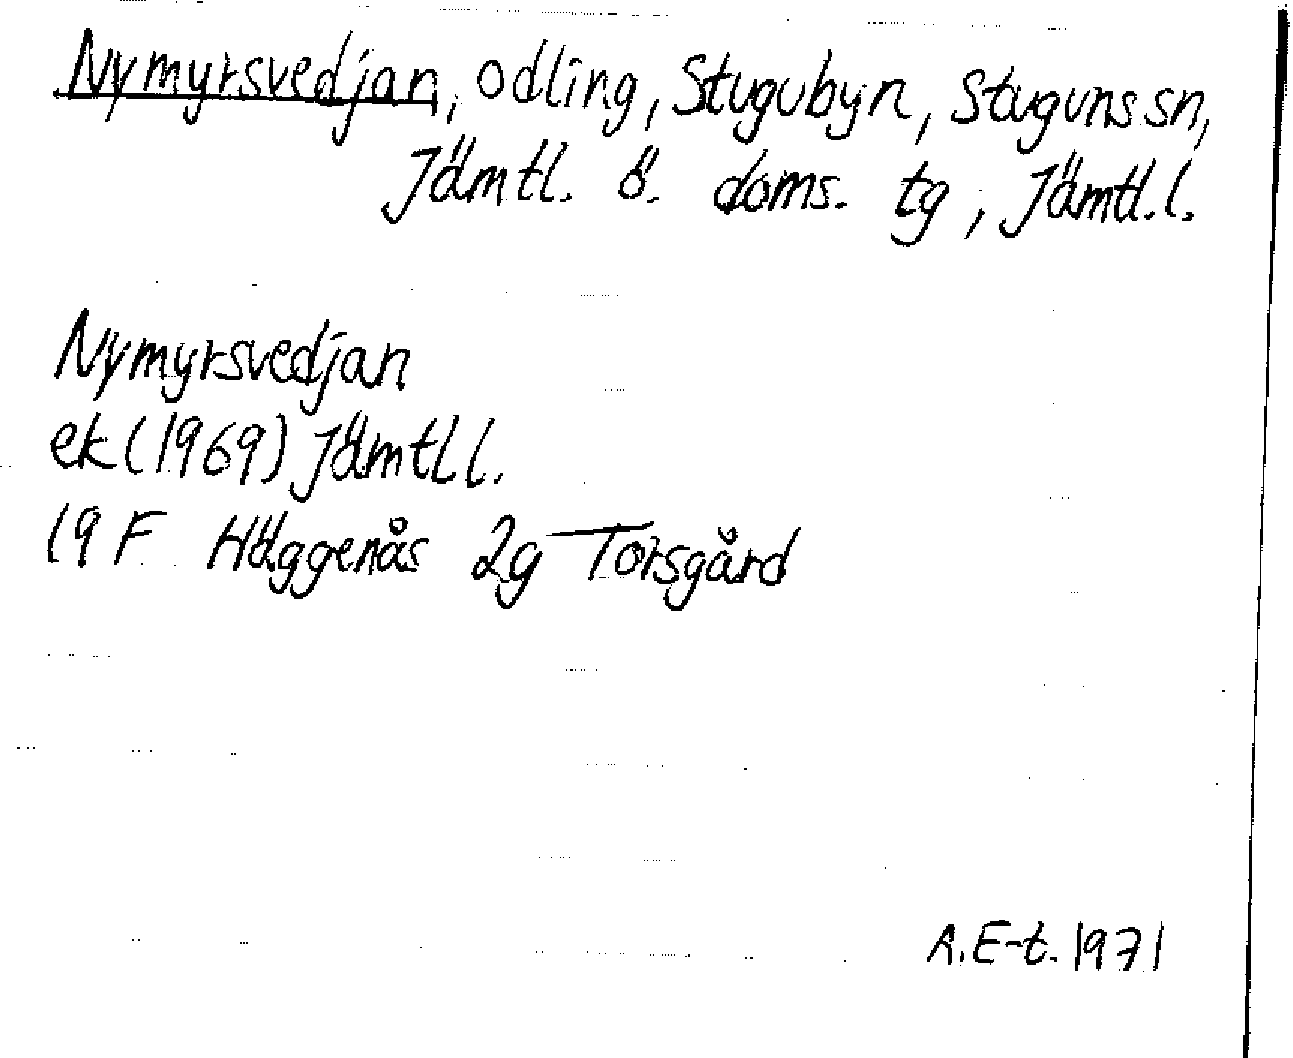 Nymyrsvedjan, odling, Stugubyn, Stuguns sn,
Jämtl. ö. doms. tg, Jämtl.l.
Nymyrsvedjan
ek (1969) Jämtl l.
19 F Häggenås 2g Torsgård
A.E-t. 1971